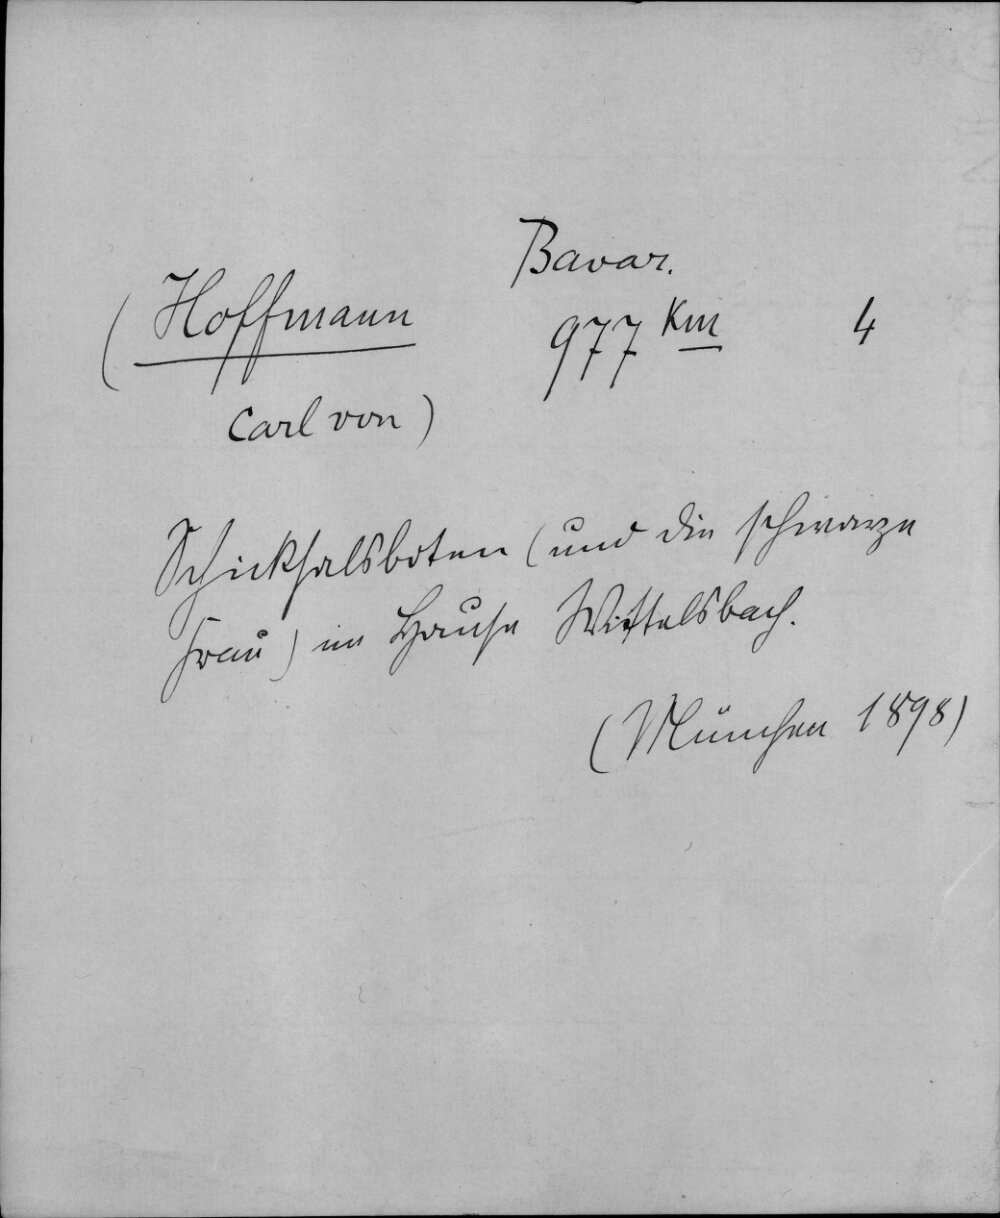 Bavar.
(Hoffmann 977 km 4
Carl von)
Schicksalsboten (und die schwarze
Frau) im Hause Wittelsbach.
(München 1898)